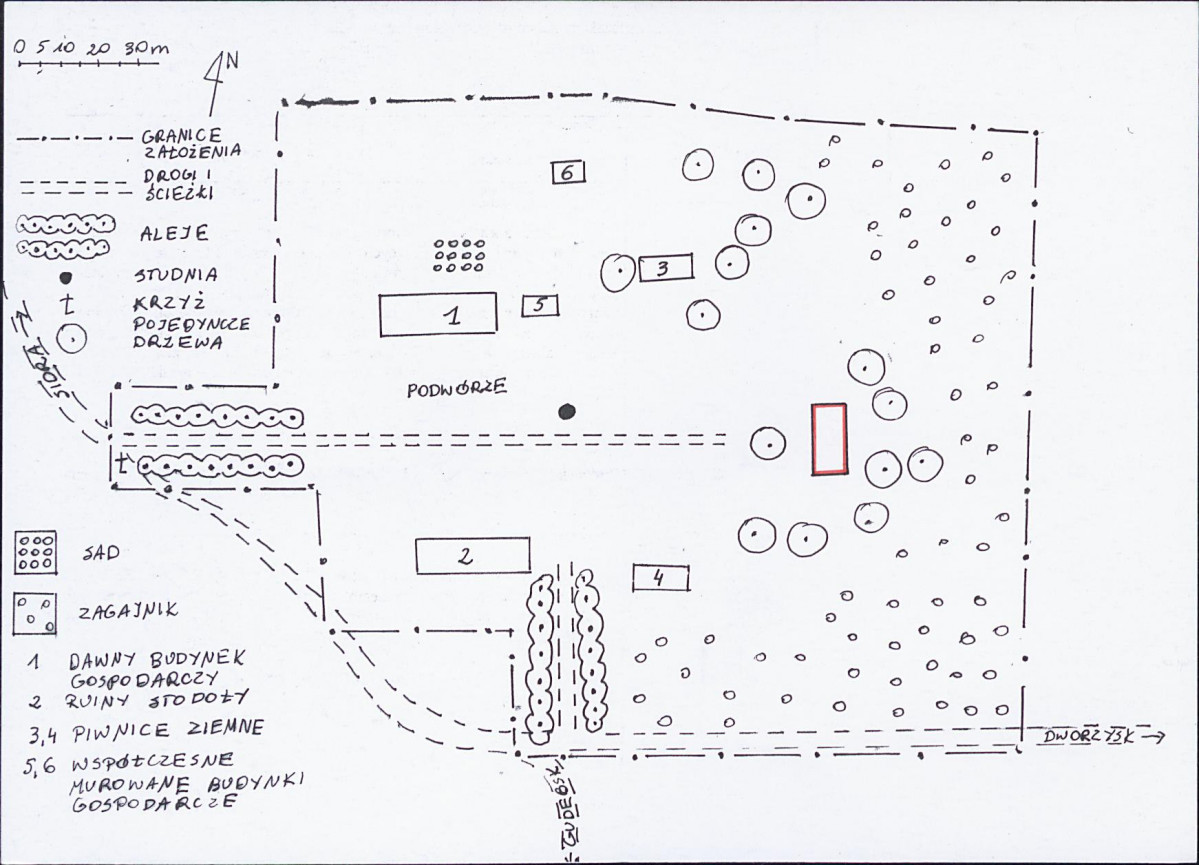 0 5 10 20 30m
N
GRANICE
ZAŁOŻENIA
DROGI I
ŚCIEŻKI
ALEJE
STUDNIA
t KRZYŻ
POJEDYNCZE
DRZEWA
SIORA
SAD
ZAGAJNIK
1 DAWNY BUDYNEK
GOSPODARCZY
2 RUINY STODOŁY
3,4 PIWNICE ZIEMNE
5,6 WSPÓŁCZESNE
MUROWANE BUDYNKI
GOSPODARCZE
6
3
1
5
PODWÓRZE
t
2
4
DWORZYSK →